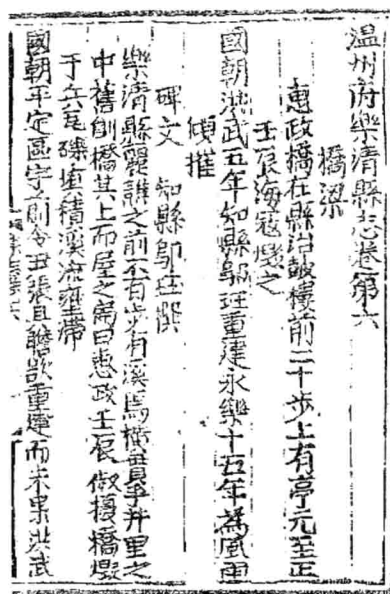 温州府樂清縣志卷第六
橋梁
惠政橋在縣治皷樓前二十步上有亭元至正
壬辰海寇燬之
國朝洪武五年知縣鄔珏重建永樂十五年為風雨
傾摧
碑文 知縣鄔珏撰
樂清縣譙之前不百步有溪焉橫貫爭井里之
中舊創橋其上而屋之扁曰惠政壬辰俶擾橋燬
于兵瓦礫堙積溪流壅滯
國朝平定區宇前令丑張且瞻欲重建而未果洪武